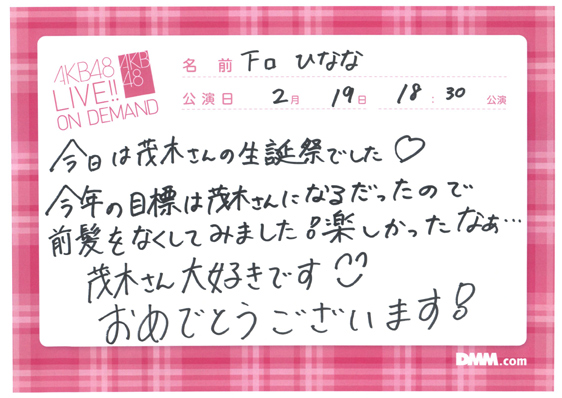 AKB48
LIVE!!
ON DEMAND
AKB
48
名前 下口 ひなな
公演日 2月 19日 18:30 公演
今日は茂木さんの生誕祭でした♡
今年の目標は茂木さんになるだったので
前髪をなくしてみました!楽しかったなぁ…
茂木さん大好きです
おめでとうございます!
DMM.com